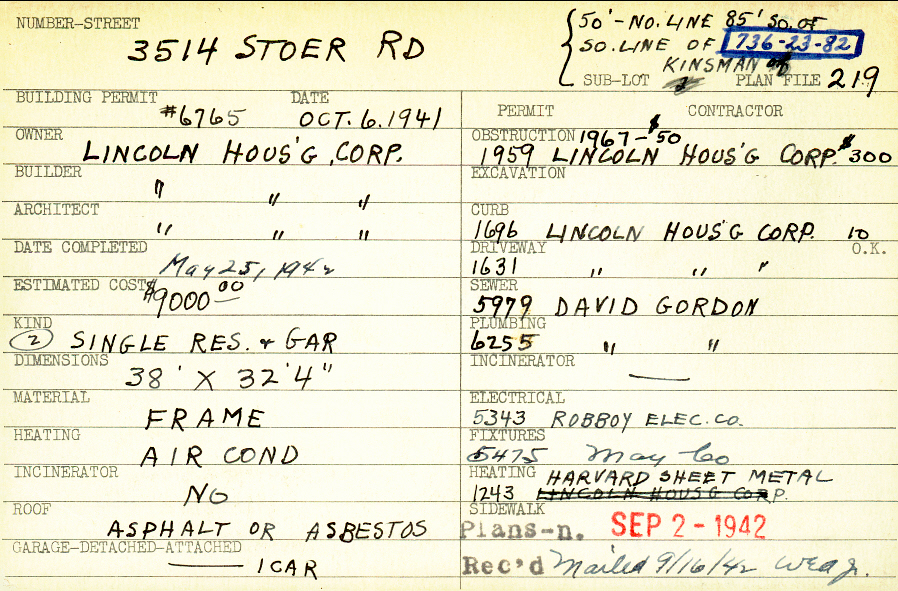 NUMBER-STREET
3514 STOER RD
50'-NO. LINE 85' SO. OF
SO. LINE OF 736-23-82
KINSMAN
SUB-LOT PLAN FILE 219
BUILDING PERMIT DATE
#6765 OCT. 6, 1941
OWNER
LINCOLN HOUS'G CORP.
BUILDER
" " "
ARCHITECT
" " "
DATE COMPLETED
May 25, 1942
ESTIMATED COST
$9000 00
KIND
2 SINGLE RES. & GAR
DIMENSIONS
38' X 32'4"
MATERIAL
FRAME
HEATING
AIR COND
INCINERATOR
NO
ROOF
ASPHALT OR ASBESTOS
GARAGE-DETACHED-ATTACHED
1 CAR
PERMIT CONTRACTOR
OBSTRUCTION 1967-$50
1959 LINCOLN HOUS'G CORP. $300
EXCAVATION
CURB
1696 LINCOLN HOUS'G CORP. 10
DRIVEWAY O.K.
1631 " " "
SEWER
5979 DAVID GORDON
PLUMBING
6255 " "
INCINERATOR
ELECTRICAL
5343 ROBBOY ELEC. CO.
FIXTURES
5475 May Co
HEATING HARVARD SHEET METAL
1243 LINCOLN HOUS'G CORP.
SIDEWALK
Plans-n. SEP 2-1942
Rec'd Mailed 9/16/42